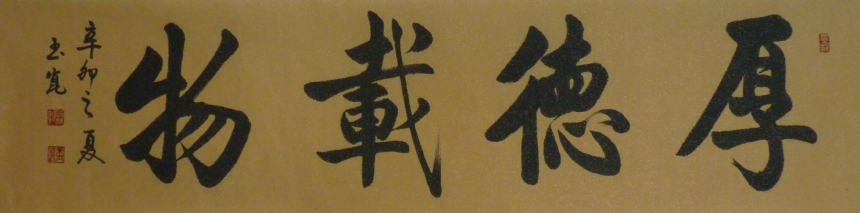 厚德載物
辛卯之夏
玉寬